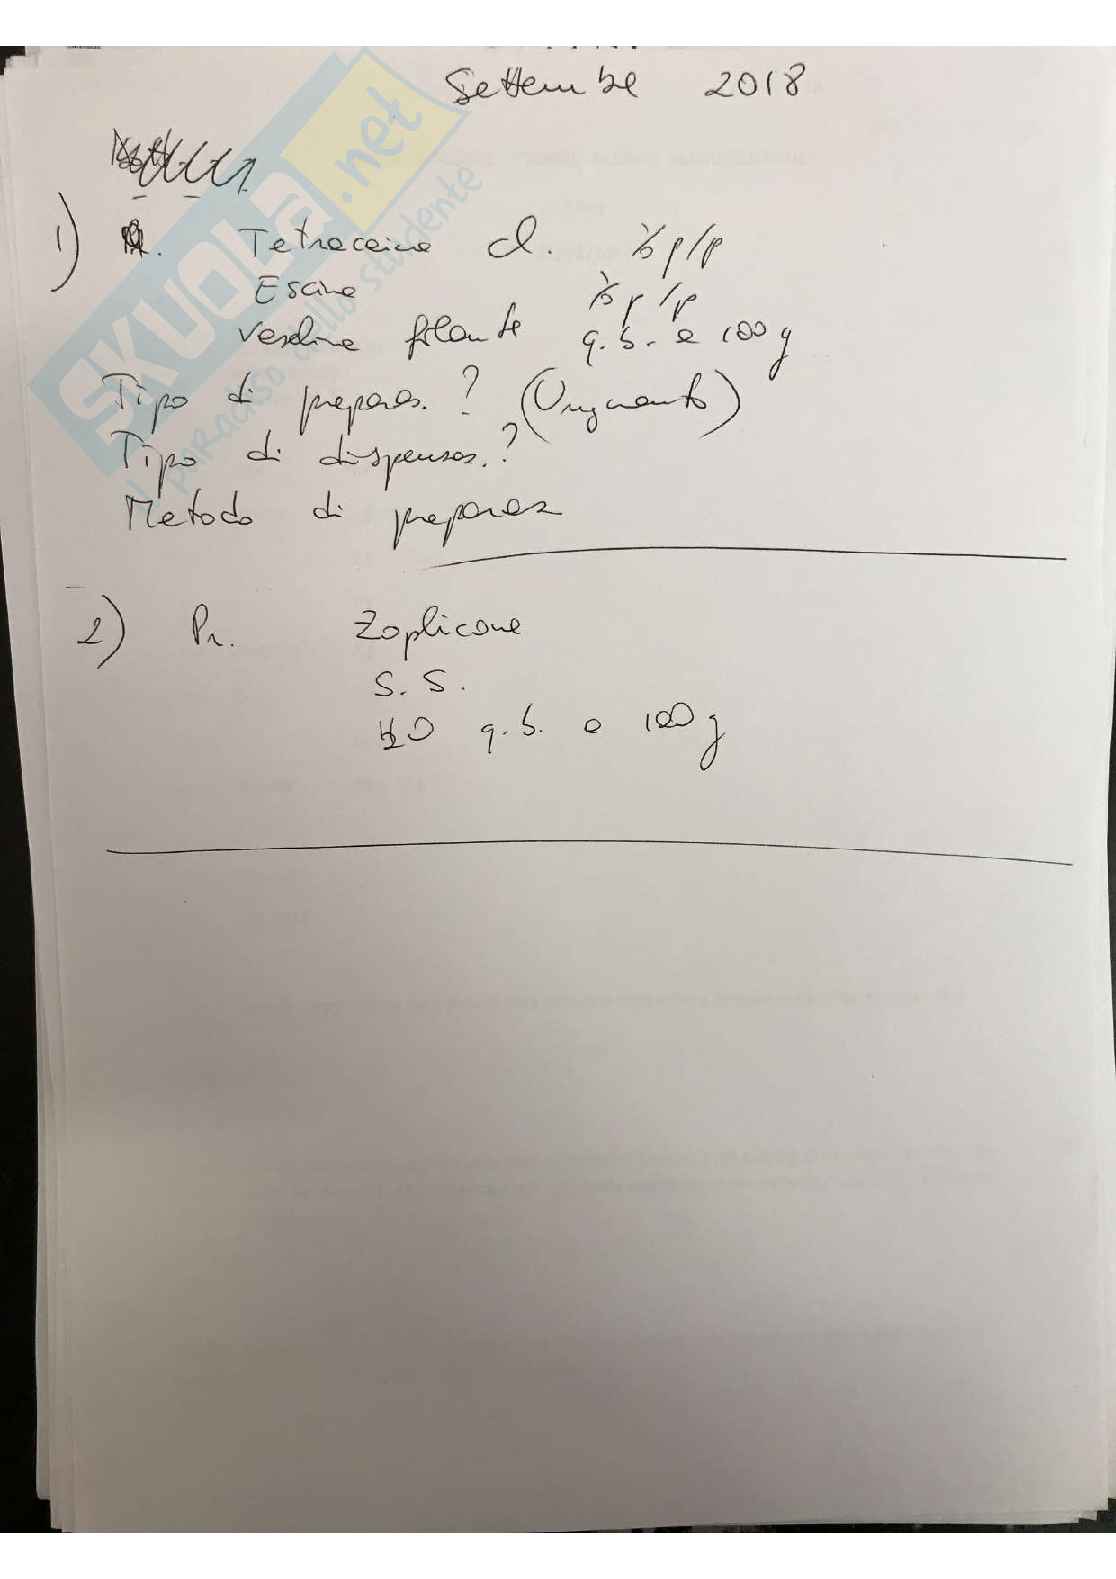 Settembre 2018
1) Tetracaina cl. % p/p
Escina % p/p
Vaselina filante q.b. a 100 g
Tipo di preparaz. ? (Unguento)
Tipo di dispensaz. ?
Metodo di preparaz
2) Pr. Zoplicone
S. S.
H2O q.b. a 100 g
SKUOLA.net
il paradiso dello studente